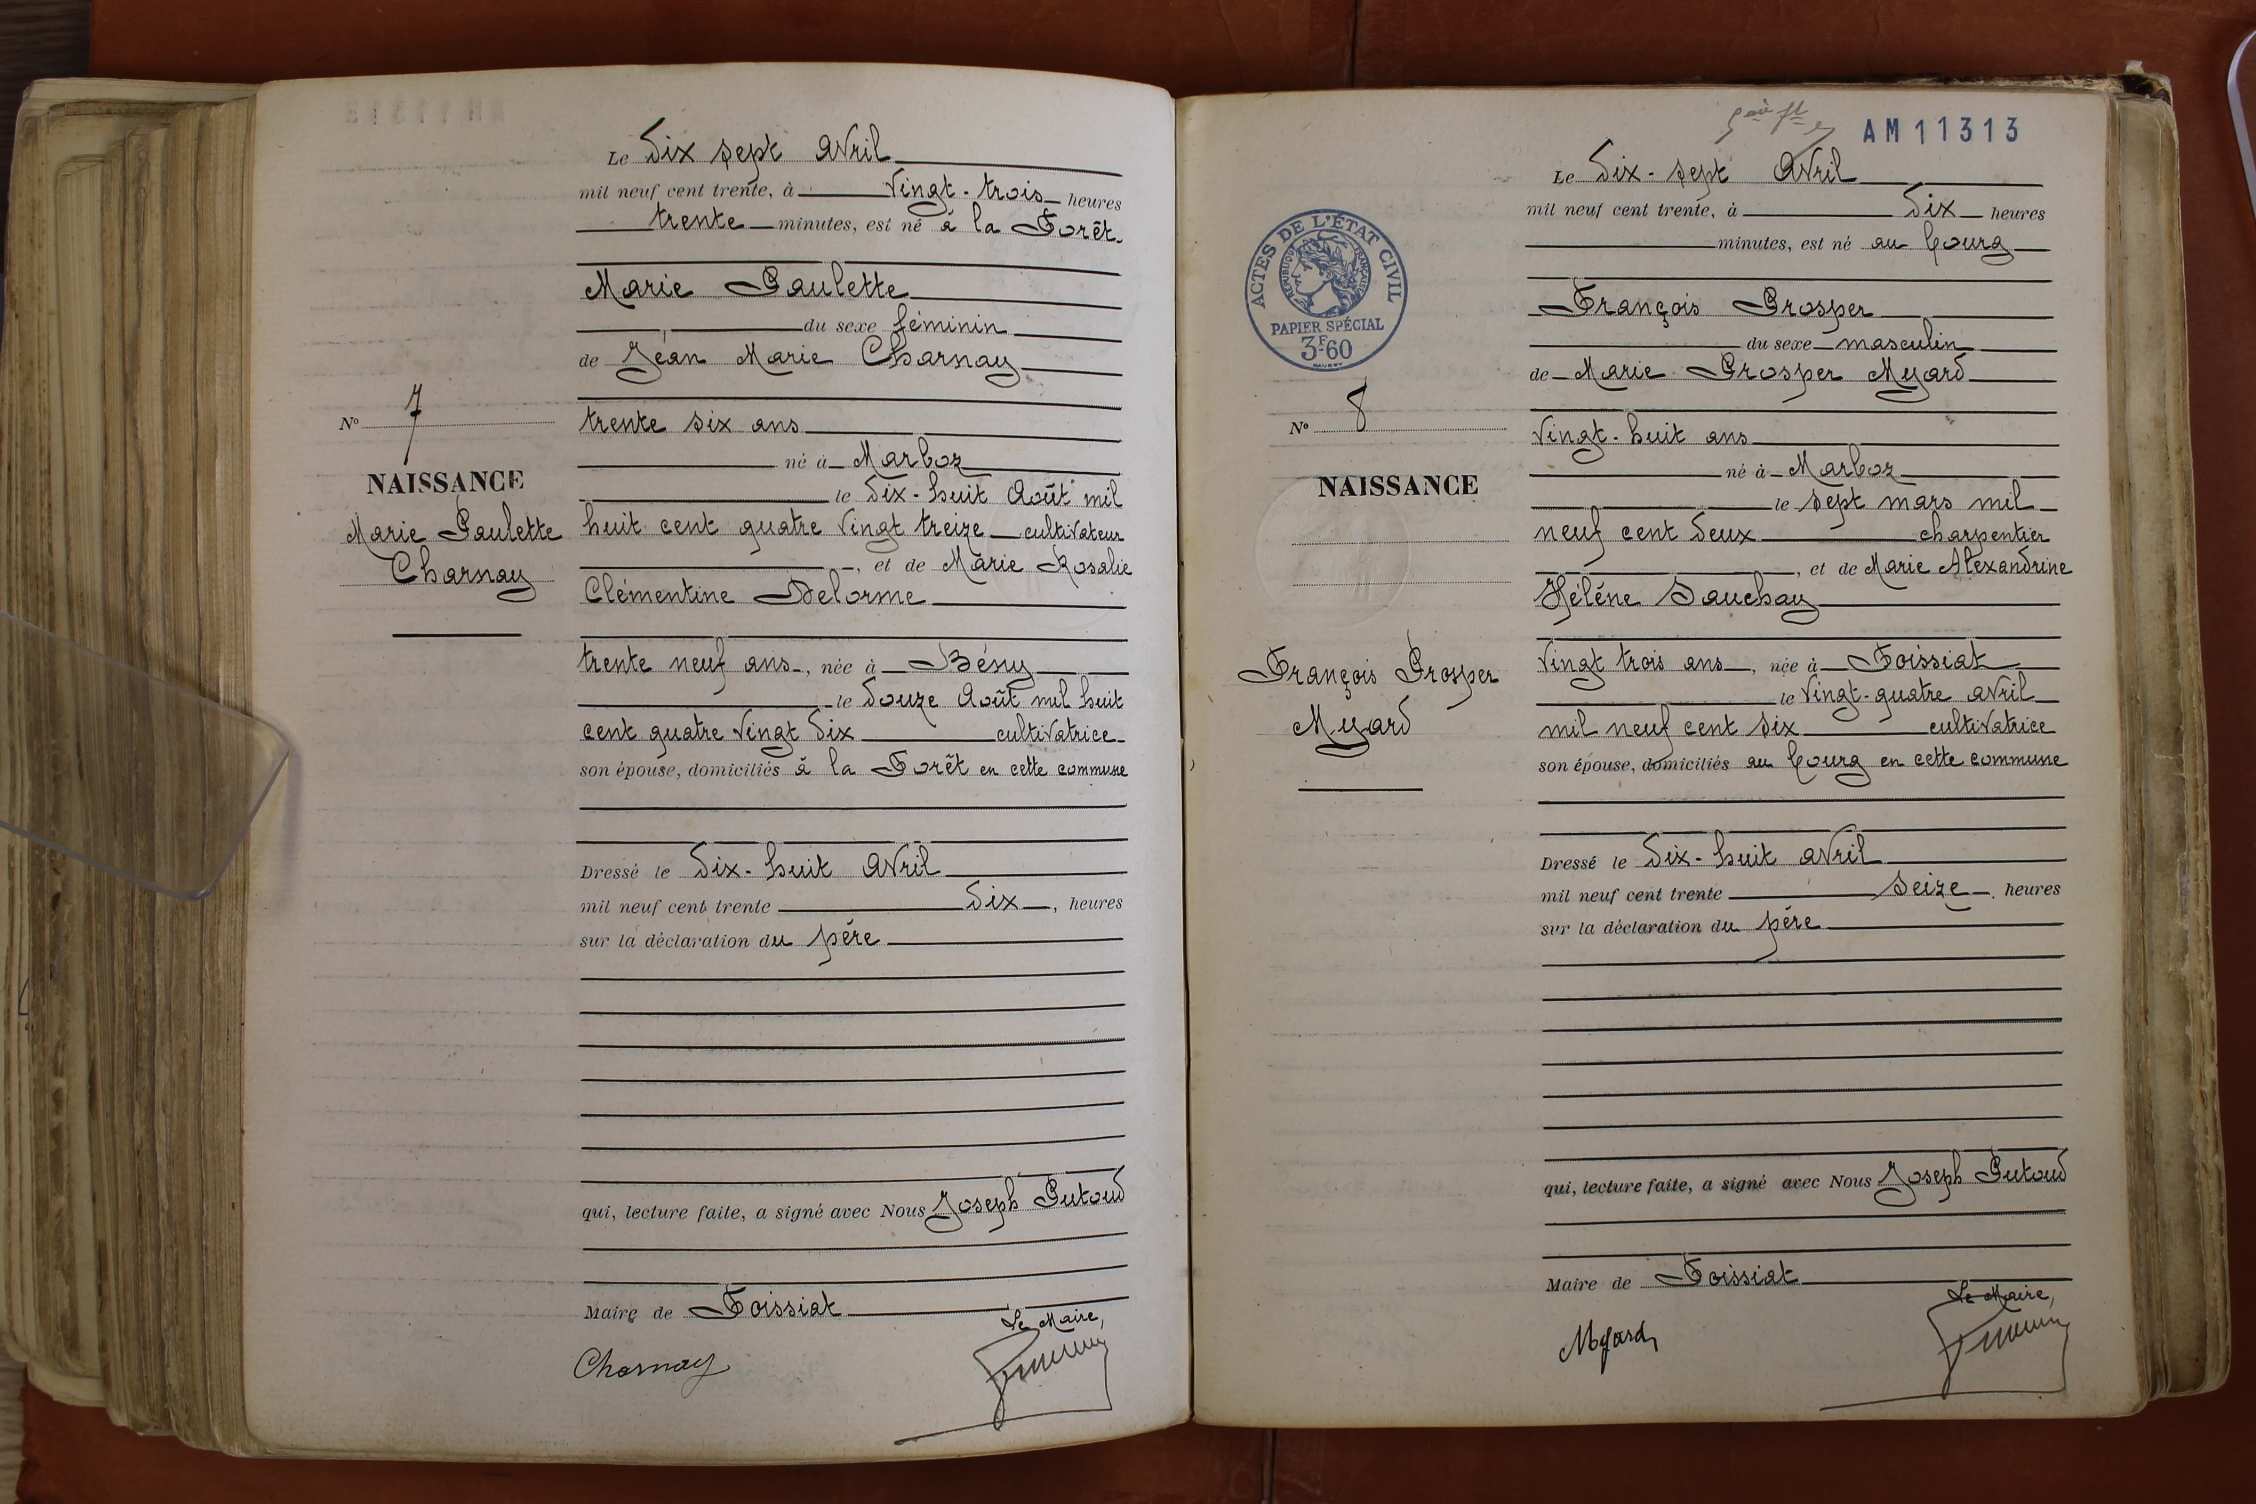 Le Dix sept Avril
mil neuf cent trente, à Vingt-trois heures
trente minutes, est né à la Forêt
Marie Paulette
du sexe féminin
de Jean Marie Charnay
trente six ans
né à Marboz
le Dix-huit Août mil
huit cent quatre Vingt treize cultivateur
, et de Marie Rosalie
Clémentine Delorme
trente neuf ans, née à Bény
le Douze Août mil huit
cent quatre Vingt Dix cultivatrice
son épouse, domiciliés à la Forêt en cette commune
Dressé le Dix-huit Avril
mil neuf cent trente Dix, heures
sur la déclaration du père
qui, lecture faite, a signé avec Nous Joseph Putoud
Maire de Foissiat
Le Maire,
Charnay
No 7
NAISSANCE
Marie Paulette
Charnay
AM 11313
ACTES DE L'ÉTAT CIVIL
RÉPUBLIQUE FRANÇAISE
PAPIER SPÉCIAL
3F60
Le Dix-sept Avril
mil neuf cent trente, à Dix heures
minutes, est né au bourg
François Prosper
du sexe masculin
de Marie Prosper Myard
Vingt-huit ans
né à Marboz
le sept mars mil
neuf cent Deux charpentier
, et de Marie Alexandrine
Hélène Sauchay
Vingt trois ans, née à Foissiat
le Vingt-quatre avril
mil neuf cent six cultivatrice
son épouse, domiciliés au bourg en cette commune
Dressé le Dix-huit avril
mil neuf cent trente seize heures
sur la déclaration du père
qui, lecture faite, a signé avec Nous Joseph Putoud
Maire de Foissiat
Le Maire,
Myard
No 8
NAISSANCE
François Prosper
Myard